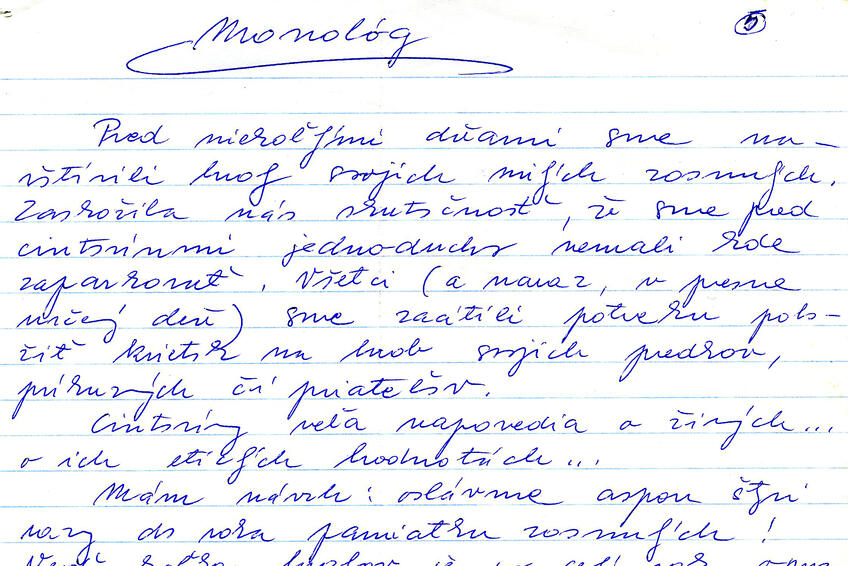 Monológ
5
Pred niekoľkými dňami sme na-
vštívili hroby svojich milých zosnulých.
Zaskočila nás skutočnosť, že sme pred
cintorínmi jednoducho nemali kde
zaparkovať. Všetci (a naraz, v presne
určený deň) sme zacítili potrebu polo-
žiť kvietok na hrob svojich predkov,
príbuzných či priateľov.
Cintoríny veľa napovedia o živých...
o ich etických hodnotách...
Mám návrh: oslávme aspoň štyri
razy do roka pamiatku zosnulých!